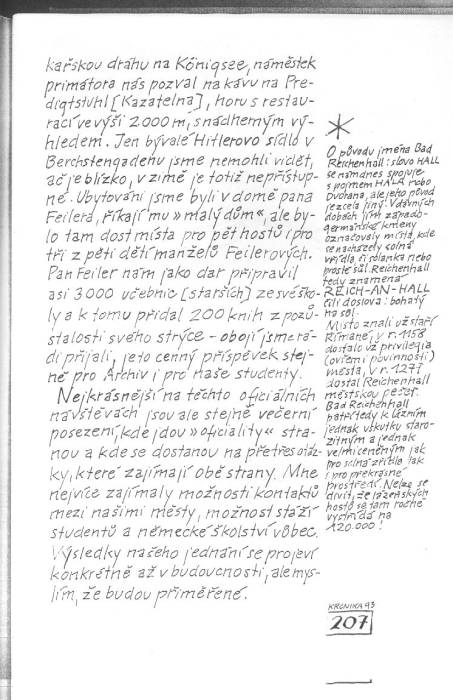 kařskou dráhu na Königsee, náměstek
primátora nás pozval na kávu na Pre-
digtstuhl [Kazatelna], horu s restau-
rací ve výši 2000 m, s nádherným vý-
hledem. Jen bývalé Hitlerovo sídlo v
Berchstengadenu jsme nemohli vidět,
ač je blízko, v zimě je totiž nepřístup-
né. Ubytováni jsme byli v domě pana
Feilera, říkají mu »malý dům«, ale by-
lo tam dost místa pro pět hostů i pro
tři z pěti dětí manželů Feilerových.
Pan Feiler nám jako dar připravil
asi 3000 učebnic [starších] ze své ško-
ly a k tomu přidal 200 knih z pozů-
stalosti svého strýce - obojí jsme rá-
di přijali, je to cenný příspěvek stej-
ně pro Archiv i pro naše studenty.
Nejkrásnější na těchto oficiálních
návštěvách jsou ale stejně večerní
posezení, kde jdou »oficiality« stra-
nou a kde se dostanou na přetřes otáz-
ky, které zajímají obě strany. Mne
nejvíce zajímaly možnosti kontaktů
mezi našimi městy, možnost stáží
studentů a německé školství vůbec.
Výsledky našeho jednání se projeví
konkrétně až v budoucnosti, ale mys-
lím, že budou přiměřené.
*
O původu jména Bad
Reichenhall: slovo HALL
se nám dnes spojuje
s pojmem HALA nebo
Dvorana, ale jeho původ
je zcela jiný. V dávných
dobách jím západo-
germánské kmeny
označovaly místa, kde
se nacházely solná
vřídla či solanka nebo
prostě sůl. Reichenhall
tedy znamená
REICH-AN-HALL
čili doslova: bohatý
na sůl.
Místo znali už staří
Římané, v r. 1158
dostalo už privilegia
(ovšem i povinnosti)
města, v r. 1277
dostal Reichenhall
městskou pečeť.
Bad Reichenhall
patří tedy k lázním
jednak vskutku staro-
žitným a jednak
velmi ceněným jak
pro solná zřídla tak
i pro překrásné
prostředí. Nelze se
divit, že lázeňských
hostů se tam ročně
vystřídá na
120.000!
KRONIKA 93
207